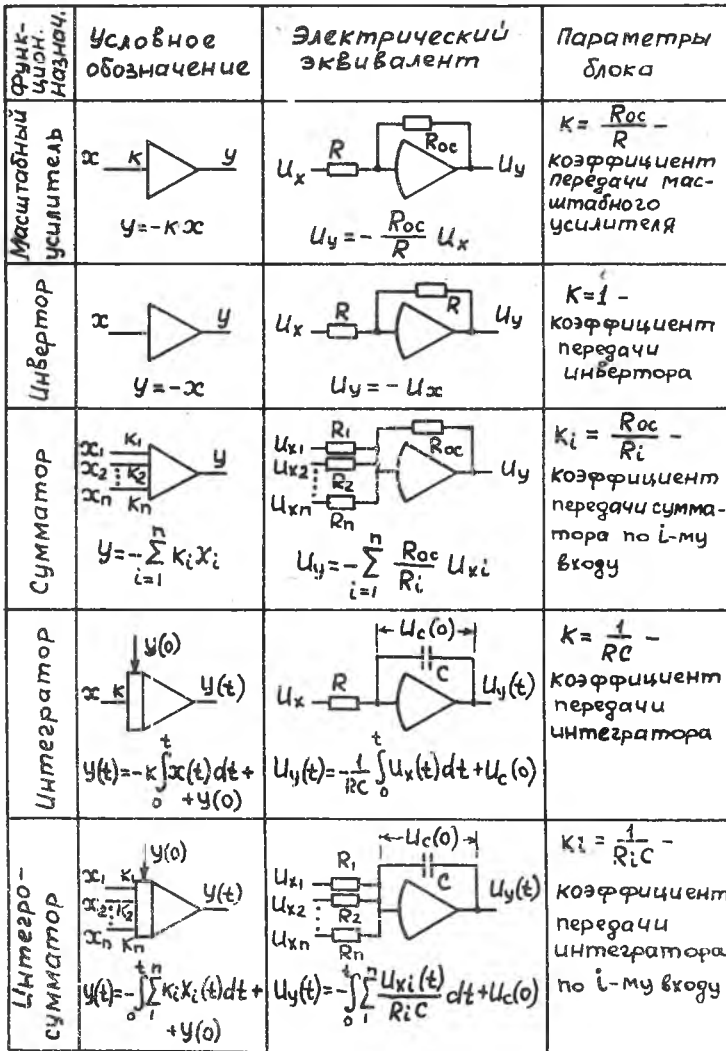 Функ-
цион.
назнач.
Условное
обозначение
Электрический
эквивалент
Параметры
блока
Масштабный
усилитель
x K y
y=-K x
Uₓ R Rос Uy
Uy = - Rос/R Uₓ
K = Rос/R -
коэффициент
передачи мас-
штабного
усилителя
Инвертор
x y
y=-x
Uₓ R R Uy
Uy = - Uₓ
K=1 -
коэффициент
передачи
инвертора
Сумматор
x₁ K₁ y
x₂ K₂
xn Kn
y=-∑ⁿᵢ₌₁ KᵢXᵢ
Uₓ₁ R₁ Rос Uy
Uₓ₂ R₂
Uₓn Rn
Uy=-∑ⁿᵢ₌₁ Rос/Rᵢ Uₓᵢ
Kᵢ = Rос/Rᵢ -
коэффициент
передачи сумма-
тора по i-му
входу
Интегратор
y(0)
x K y(t)
y(t)=-K∫₀ᵗx(t)dt+
+y(0)
Uc(0)
C
Uₓ R Uy(t)
Uy(t)=-1/RC ∫₀ᵗUₓ(t)dt+Uc(0)
K = 1/RC -
коэффициент
передачи
интегратора
Интегро-
сумматор
y(0)
x₁ K₁ y(t)
x₂ K₂
xn Kn
y(t)=-∫₀ᵗ∑₁ⁿKᵢXᵢ(t)dt+
+y(0)
Uc(0)
C
Uₓ₁ R₁ Uy(t)
Uₓ₂ R₂
Uₓn Rn
Uy(t)=-∫₀ᵗ∑₁ⁿ Uₓᵢ(t)/RᵢC dt+Uc(0)
Kᵢ = 1/RᵢC -
коэффициент
передачи
интегратора
по i-му входу